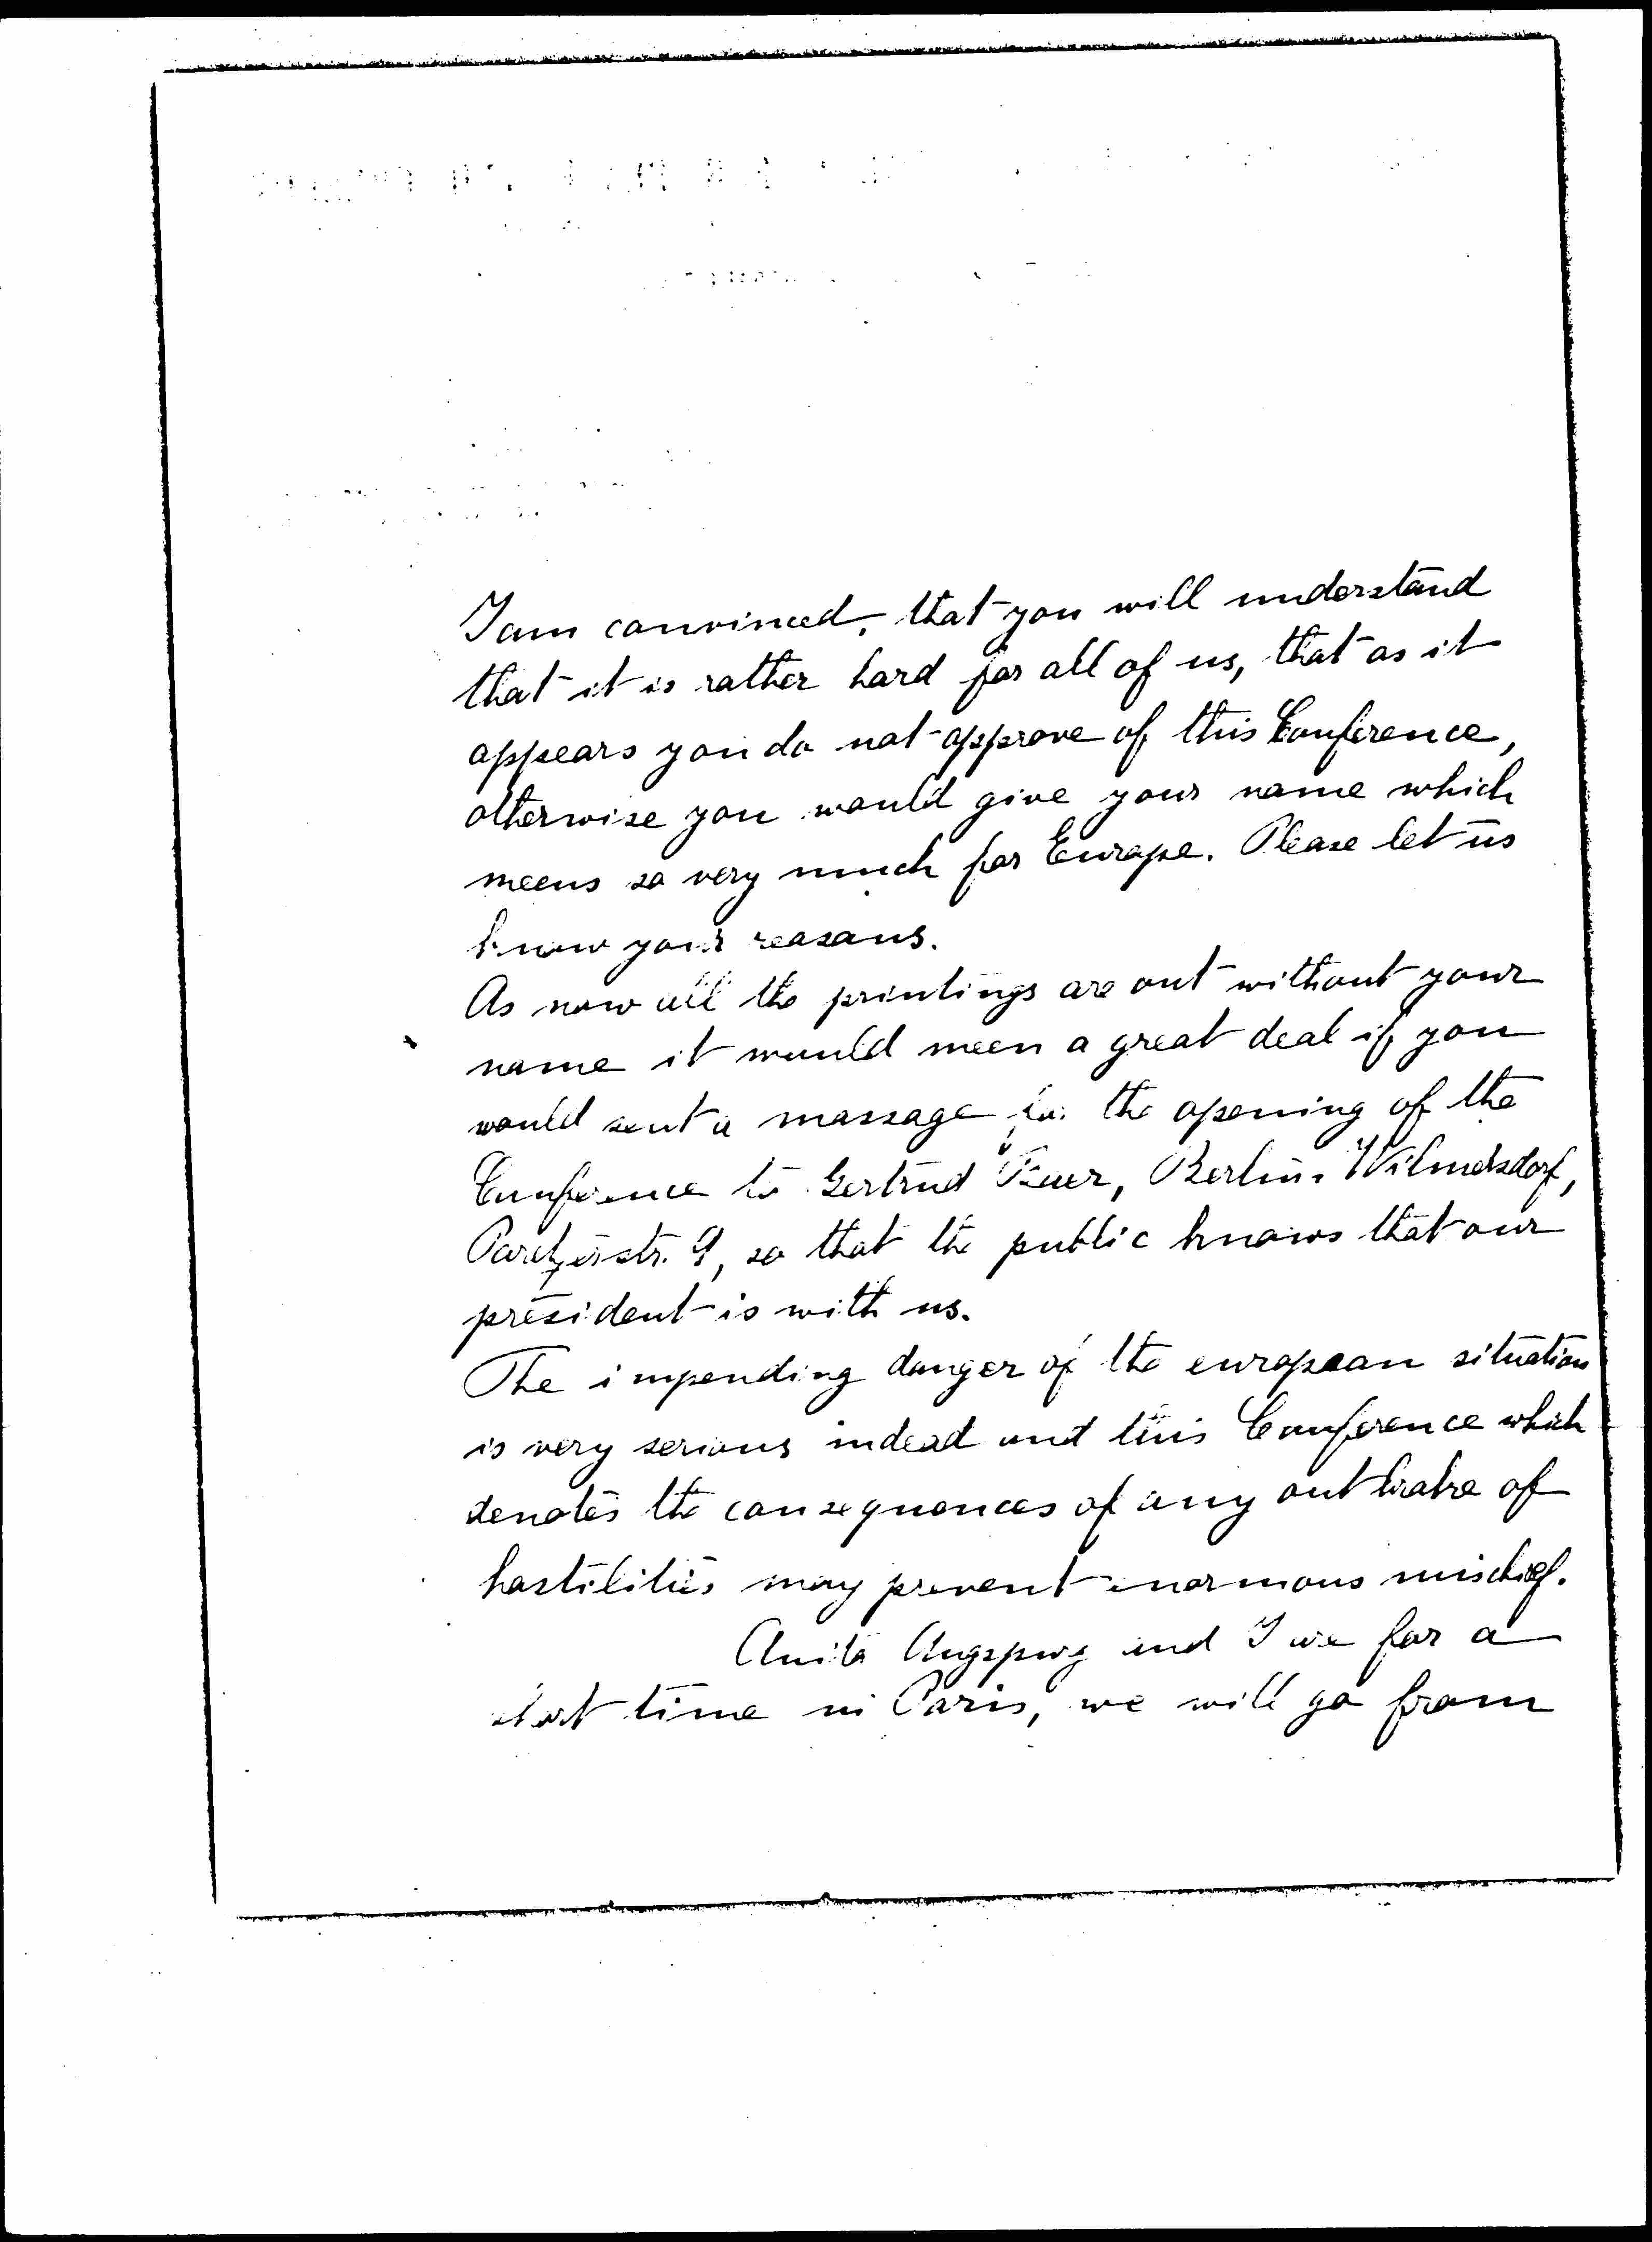 I am convinced, that you will understand
that it is rather hard for all of us, that as it
appears you do not approve of this Conference,
otherwise you would give your name which
meens so very much for Europe. Please let us
know your reasons.
As now all the printings are out without your
name it would meen a great deal if you
would sent a massage for the opening of the
Conference to Gertrud Baer, Berlin. Wilmersdorf,
so that the public knows that our
president is with us.
The impending danger of the european situation
is very serious indead and this Conference which
denotes the consequences of any outbrake of
hostilities may prevent enormous mischief.
Anita Augspurg and I are for a
short time in Paris, we will go from